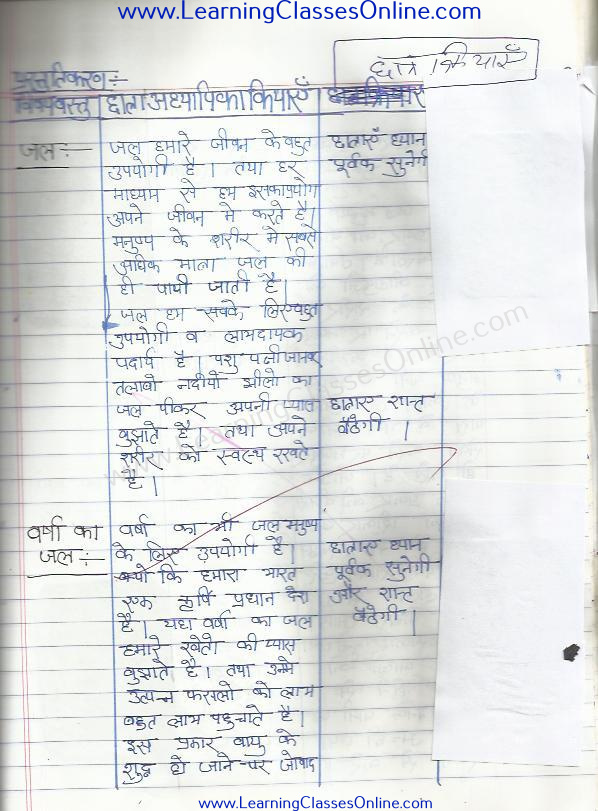 www.LearningClassesOnline.com
छात्र क्रियाएँ
प्रस्तुतिकरण :-
विषयवस्तु छात्राअध्यापिका क्रियाएँ
जल :- जल हमारे जीवन के बहुत छात्राएँ ध्यान
उपयोगी है। तथा हर पूर्वक सुनेगी
माध्यम से हम इसका प्रयोग
अपने जीवन मे करते है।
मनुष्य के शरीर मे सबसे
अधिक मात्रा जल की
ही पायी जाती है।
जल हम सबके लिए बहुत
उपयोगी व लाभदायक
पदार्थ है। पशु पक्षी जानवर
तलावो नदीयो झीलो का
जल पीकर अपनी प्यास छात्राए शान्त
बुझाते है। तथा अपने बैठेगी।
शरीर को स्वस्थ रखते
है।
वर्षा का वर्षा का भी जल मनुष्य
जल :- के लिए उपयोगी है। छात्राए ध्यान
क्यो कि हमारा भारत पूर्वक सुनेगी
एक कृषि प्रधान देश और शान्त
है। यहा वर्षा का जल बैठेगी।
हमारे खेतो की प्यास
बुझाते है। तथा उनमे
उत्पन्न फसलो को लाभ
बहुत लाभ पहुचाते है।
इस प्रकार वायु के
शुद्ध हो जाने पर
www.LearningClassesOnline.com
www.LearningClassesOnline.com